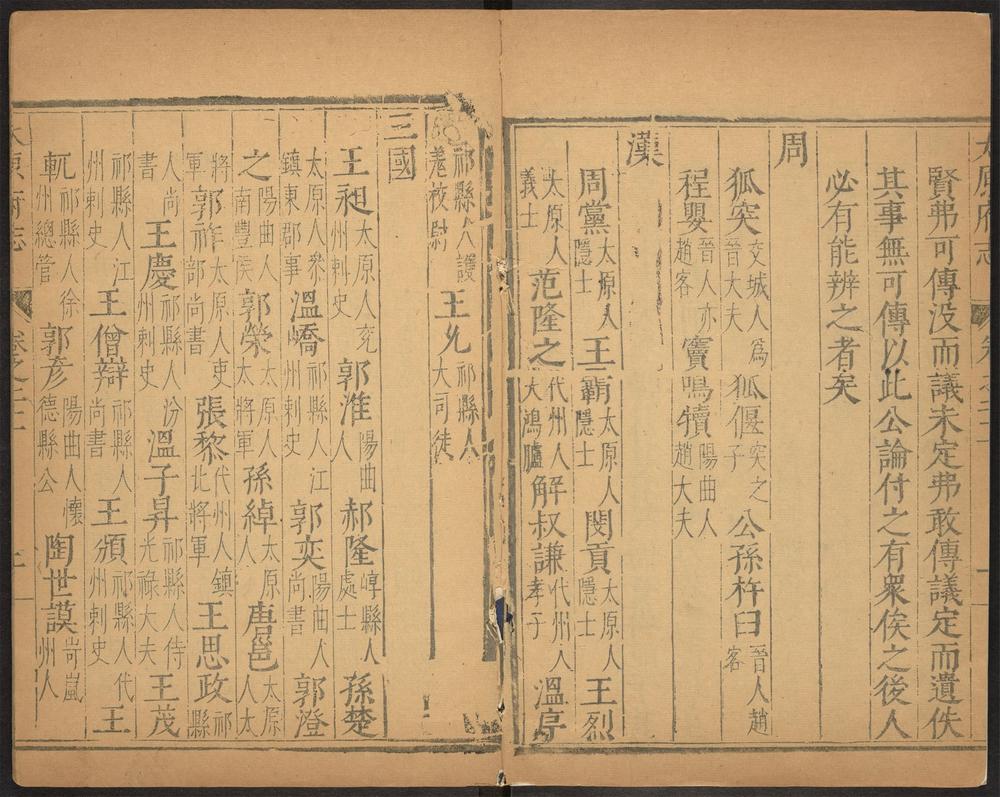 太原府志
賢弗可傳没而議未定弗敢傳議定而遺佚
其事無可傳以此公論付之有衆俟之後人
必有能辨之者矣
周
狐突交城人爲晉大夫狐偃突之子公孫杵臼晉人趙客
程嬰晉人亦趙客竇鳴犢陽曲人趙大夫
漢
周黨太原人隱士王霸太原人隱士閔貢太原人隱士王烈
太原人義士范隆之代州人大鴻臚解叔謙代州人孝子溫序
祁縣人護羌校尉王允祁縣人大司徒
三國
王昶太原人兖州刺史郭淮陽曲人郝隆崞縣人處士孫楚
太原人叅鎮東郡事溫嶠祁縣人江州刺史郭奕陽曲人尚書郭澄
之陽曲人南豐侯郭榮太原人太將軍孫綽太原人唐邕太原人太
將軍郭祚太原人吏部尚書張黎代州人鎮北將軍王思政祁縣
人尚書王慶祁縣人汾州刺史溫子昇祁縣人侍光祿大夫王茂
祁縣人江州刺史王僧辯祁縣人尚書王頒祁縣人代州刺史王
軌祁縣人徐州總管郭彦陽曲人懷德縣公陶世謨岢嵐州人
太原府志